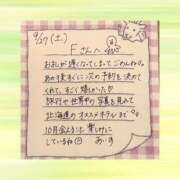 9/27(土)
Fさんへ
お礼が遅くなってしまってごめんね
あの後すぐに次の予約を決めて
くれて、すごく嬉しかったか
旅行や世界中の写真を見て
北海道のオススメホテルまで
10月会えるのを楽しみに
しているね